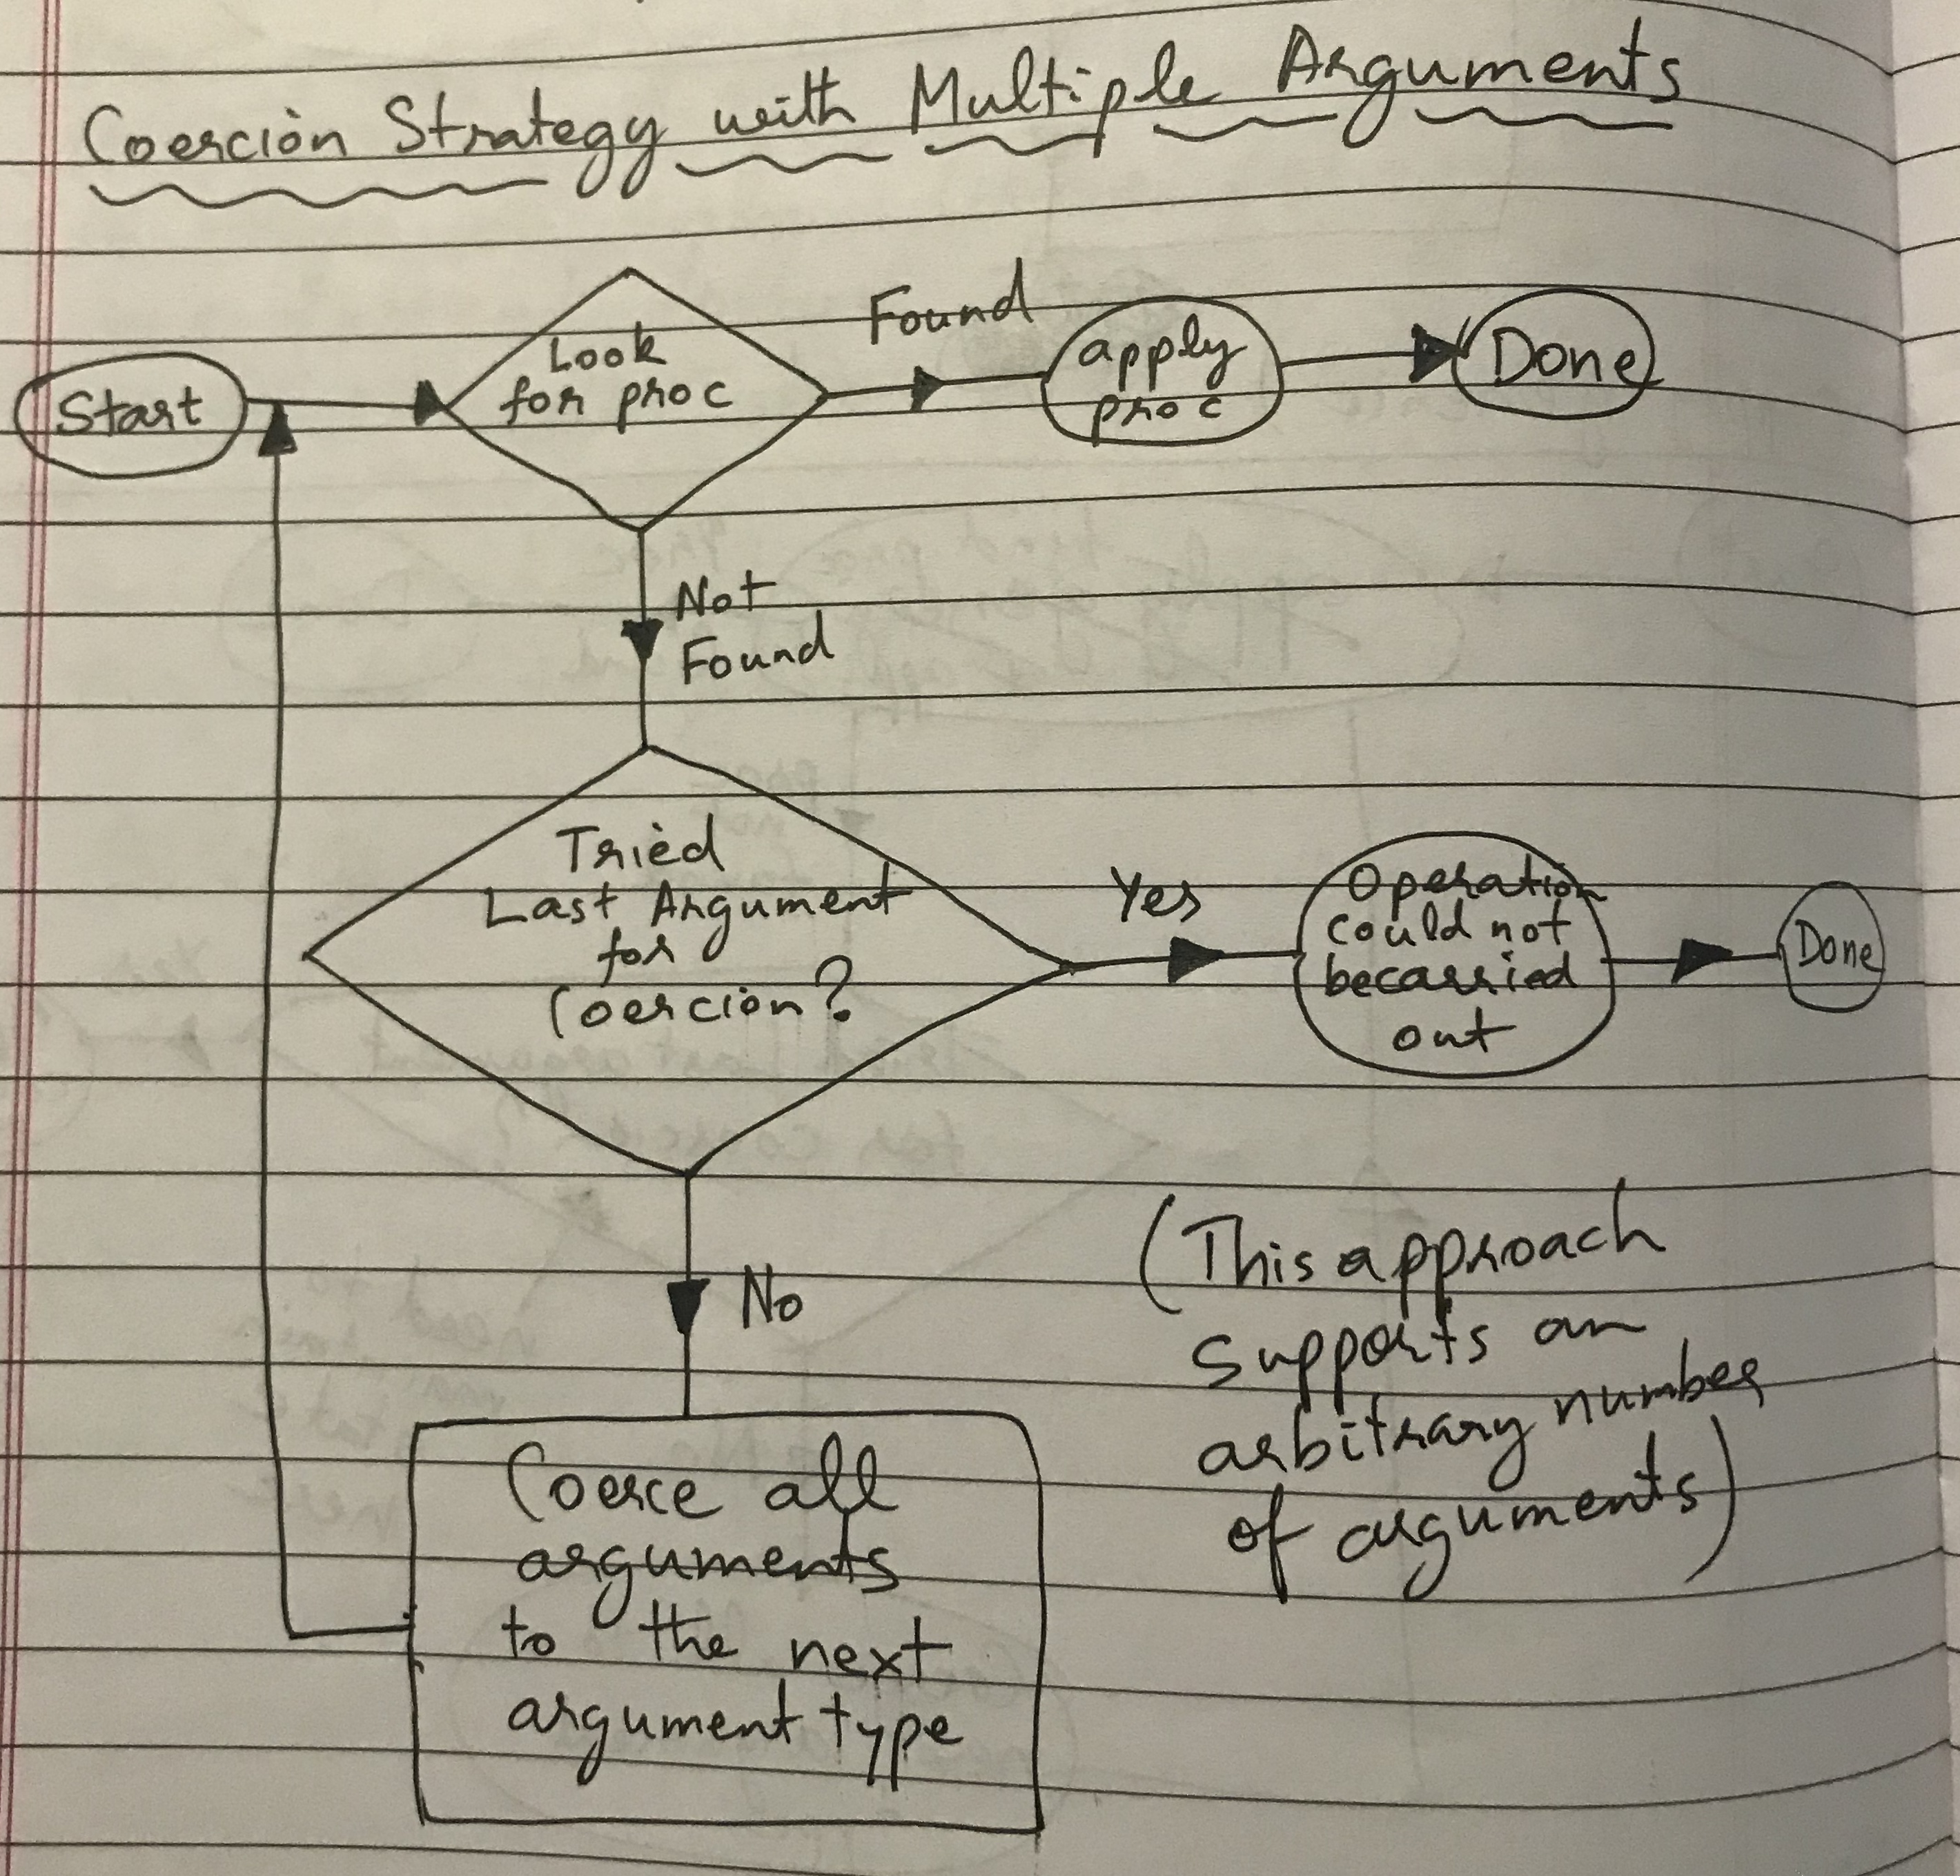 Coercion Strategy with Multiple Arguments
Start
Look
for proc
Found
apply
proc
Done
Not
Found
Tried
Last Argument
for
Coercion?
Yes
Operation
could not
becarried
out
Done
No
Coerce all
arguments
to the next
argument type
(This approach
supports an
arbitrary number
of arguments)